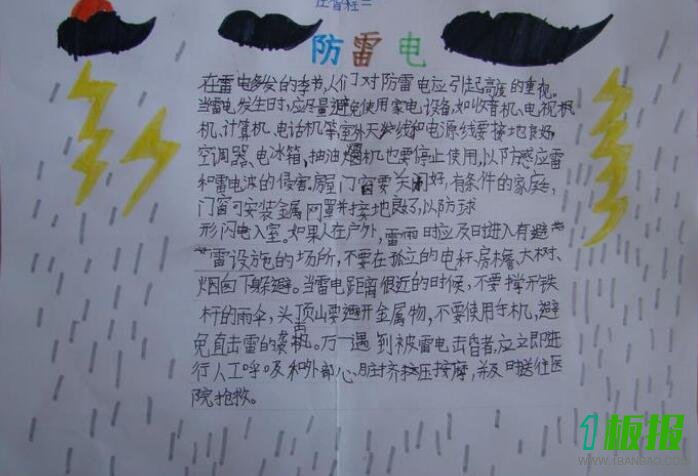 防雷电
在雷电多发的季节,人们对防雷电应引起高度的重视。
当雷电发生时,应尽量避免使用家电设备,如收音机、电视机
机、计算机、电话机等,室外天线和电源线要接地良好,
空调器、电冰箱、抽油烟机也要停止使用,以防感应雷
和雷电波的侵害。房屋门窗要关闭好,有条件的家庭,
门窗可安装金属网罩并接地良好,以防球
形闪电入室。如果人在户外,雷雨时应及时进入有避
雷设施的场所,不要在孤立的电杆、房檐、大树、
烟囱下躲避。当雷电距离很近的时候,不要撑开铁
杆的雨伞,头顶山要避开金属物,不要使用手机,避
免直击雷的袭击。万一遇到被雷电击昏者,应立即进
行人工呼及和外部心脏挤压按摩,并及时送往医
院抢救。
1板报
WWW.1BANBAO.COM